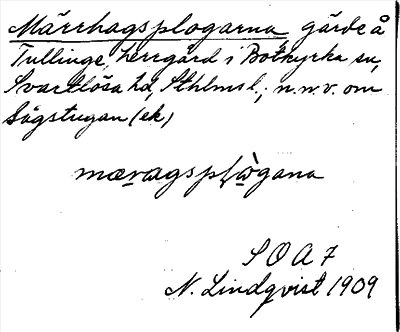 Märrhagsplogarna, gärde å
Tullinge, herrgård i Botkyrka sn,
Svartlösa hd, Sthlms l.; n.n.v. om
Sågstugan (ek)
mæragsplògana
S O A 7
N. Lindqvist 1909